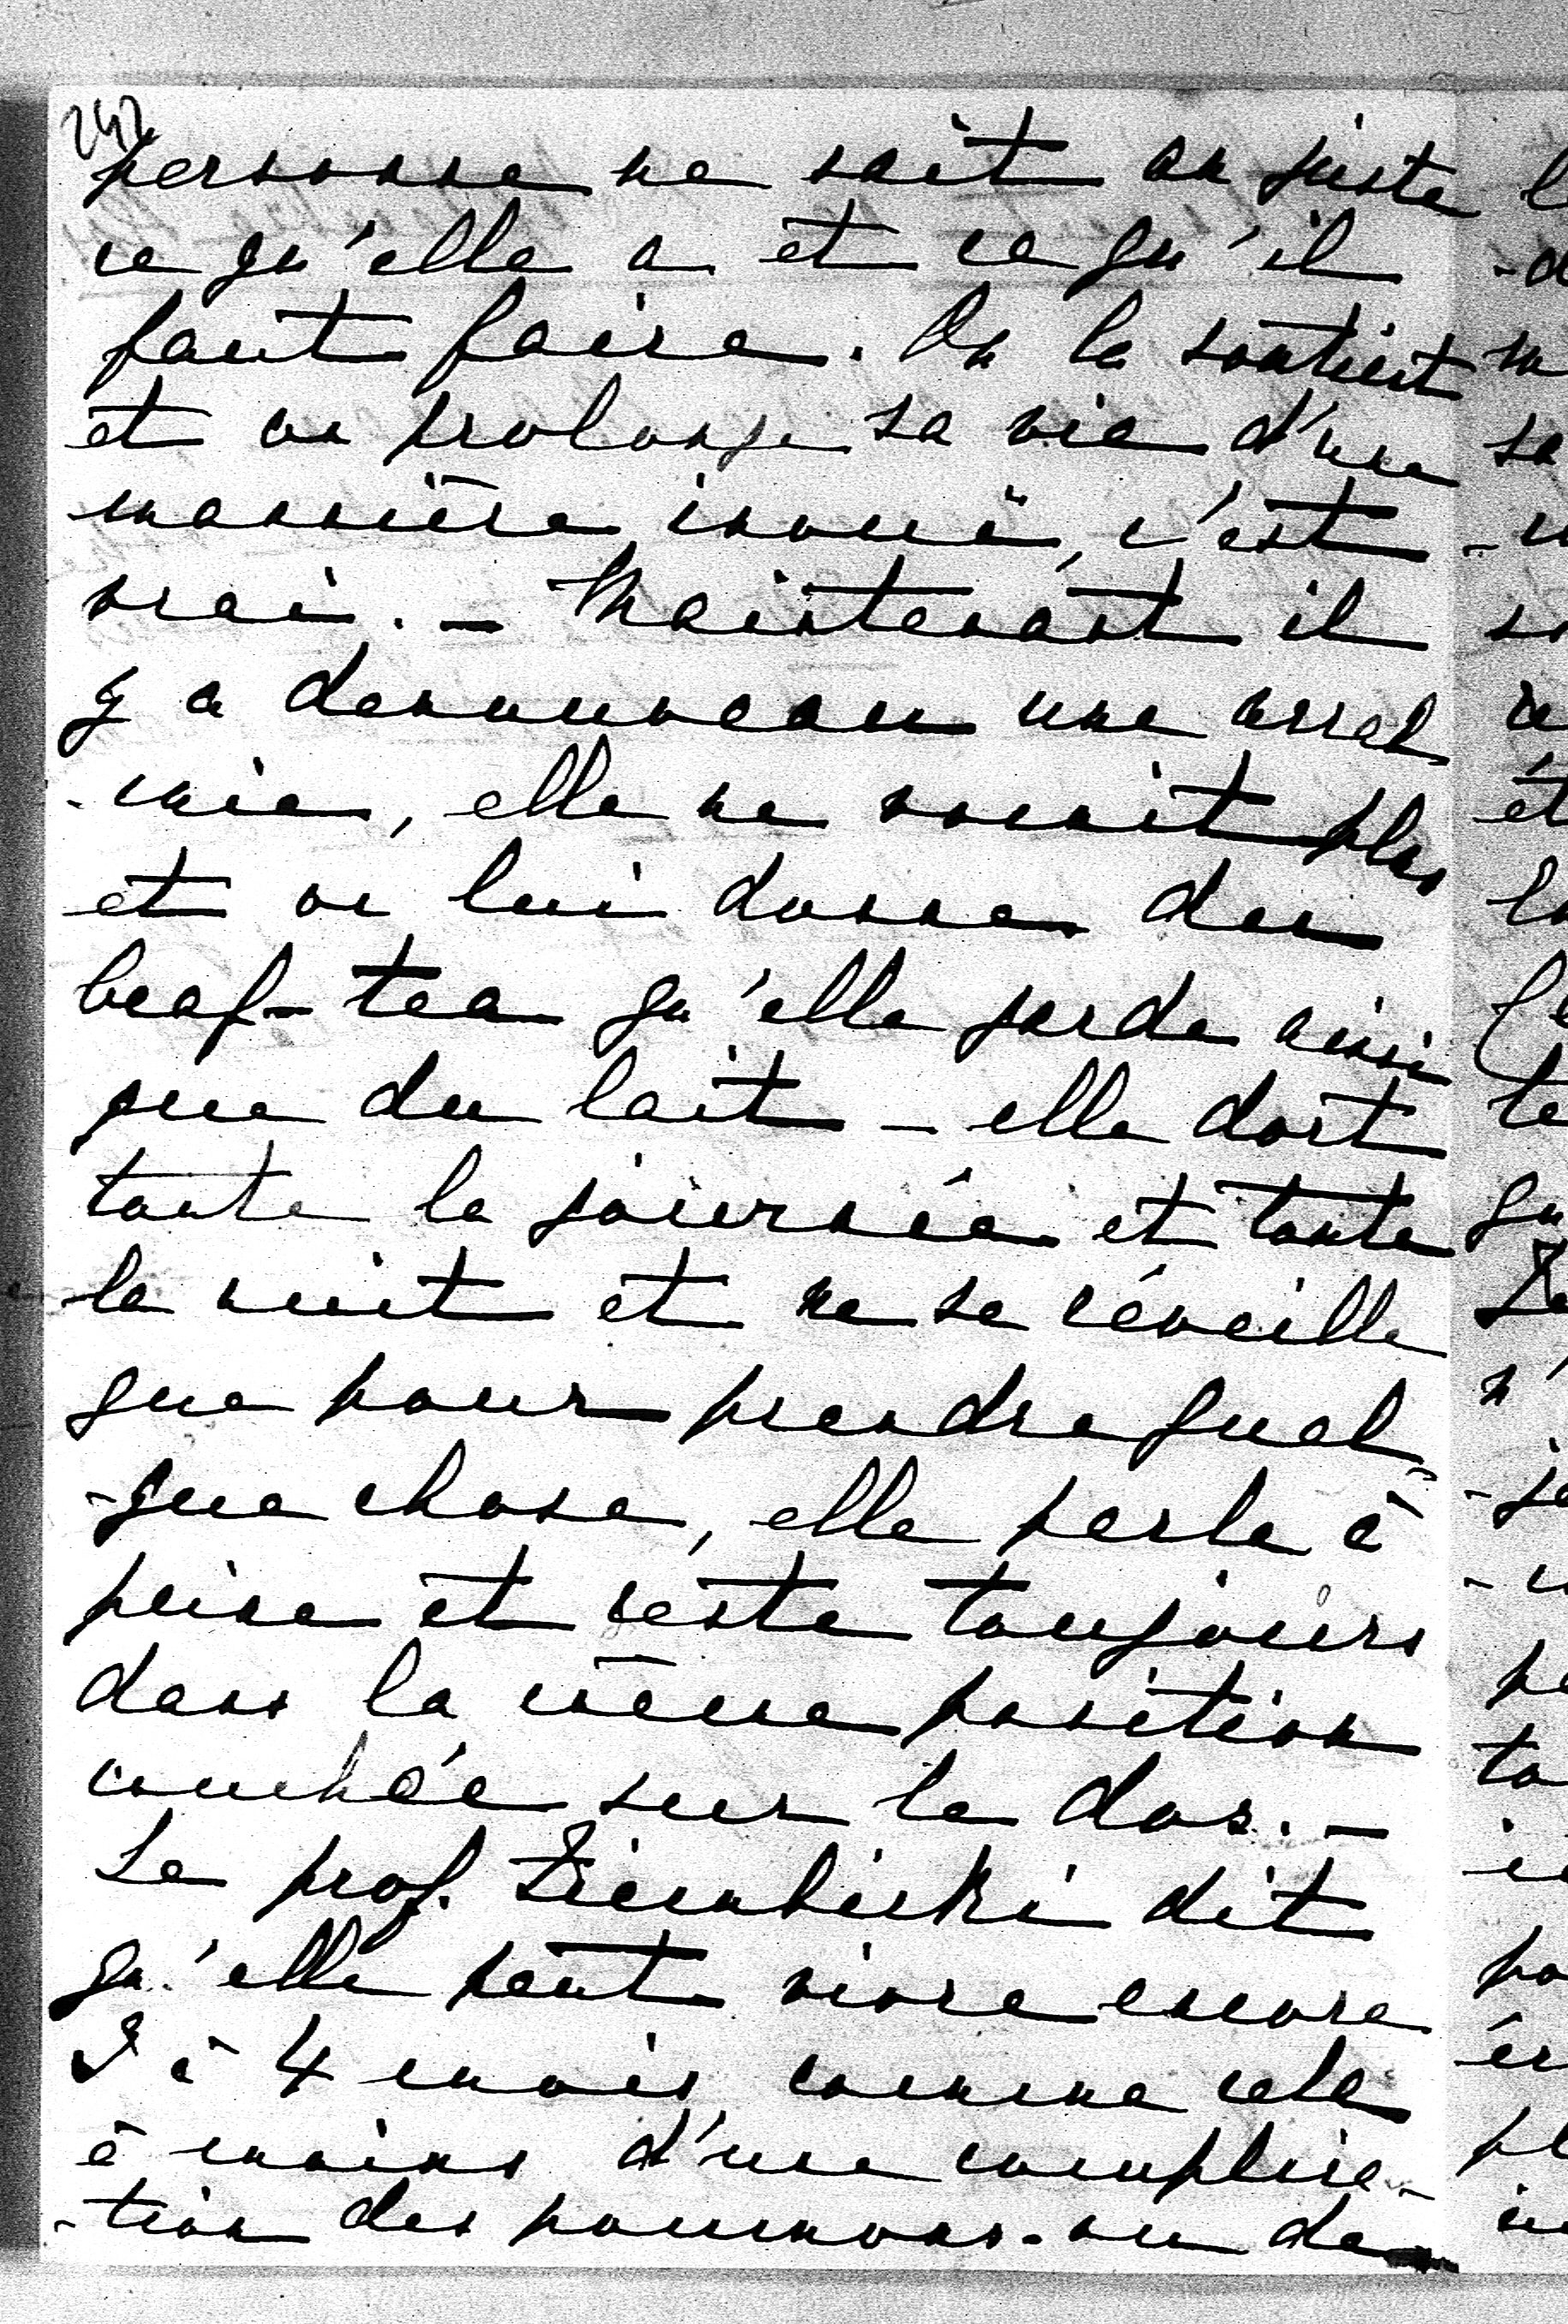 242
personne ne sait au juste
ce qu'elle a et ce qu'il
faut faire. On la soutient
et on prolonge sa vie d'une
mannière inouië, c'est
vrai. — Maintenant il
y a denouveau une accal
-mie, elle ne vomit plus
et on lui donne du
beaf-tea qu'elle garde ainsi
que du lait — elle dort
toute la journée et toute
la nuit et ne se réveille
que pour prendre quel-
-que chose, elle parle à
peine et reste toujours
dans la même position
couchée sur le dos. —
Le prof. Ziembicki dit
qu'elle peut vivre encore
3 à 4 mois comme cela
à moins d'une complica-
-tion des poumons ou de